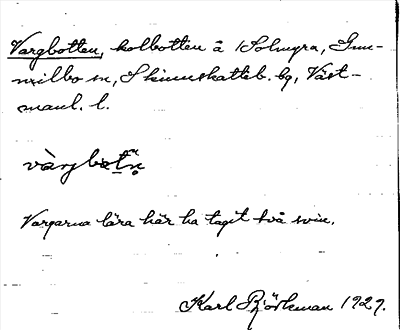 Vargbotten, kolbotten å Solmyra, Gun-
nilbo sn, Skinnskatteb. bg, Väst-
manl. l.
vàrgbɷtn̥
Vargarna lära här ha tagit två svin.
Karl Björkman 1929.